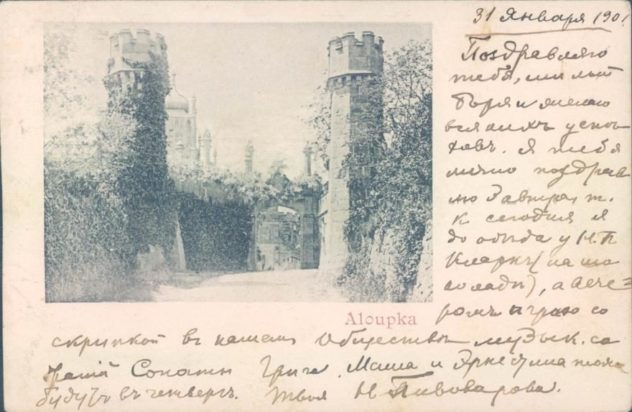 31 Января 1901.
Поздравляю
тебя, милый
Боря и желаю
всяких успе-
ховъ. Я тебя
лично поздрав
лю завтра, т.
к сегодня я
до обеда у Н. П.
Кларкъ (на шо
коладъ), а вече-
ромъ играю со
Aloupka
скрипкой въ нашемъ Обществѣ музык. со
Сонаты Грига. Маша и Эрнестина тоже
будутъ въ четвергъ. Твоя Н Пивоварова.